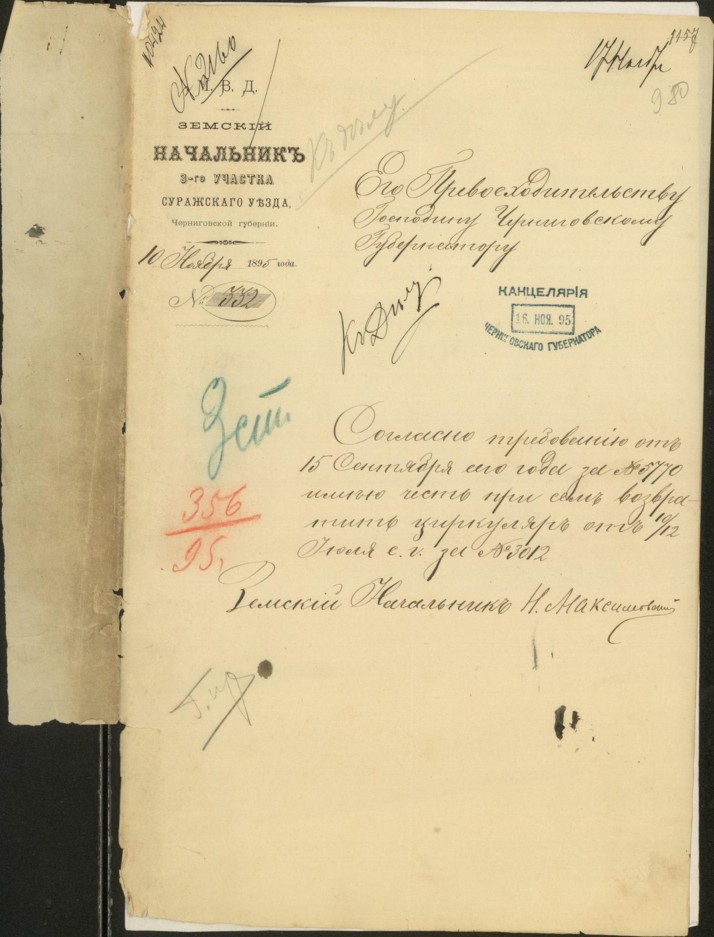 10424
№ 2160
М. В. Д.
ЗЕМСКІЙ
НАЧАЛЬНИКЪ
3-го УЧАСТКА
СУРАЖСКАГО УѢЗДА,
Черниговской губерніи.
10 Ноября 1895 года.
№ 552
17 Ноября
980
Къ дѣлу
Его Превосходительству
Господину Черниговскому
Губернатору
Къ Дѣлу
КАНЦЕЛЯРІЯ
16. НОЯ. 95.
ЧЕРНИГОВСКАГО ГУБЕРНАТОРА
3 ст.
356
95.
Согласно требованію отъ
15 Сентября сего года за № 5770
имѣю честь при семъ возвра-
тить циркуляръ отъ 10/12
Іюля с. г. за № 3012
Земскій Начальникъ Н. Максимовскій